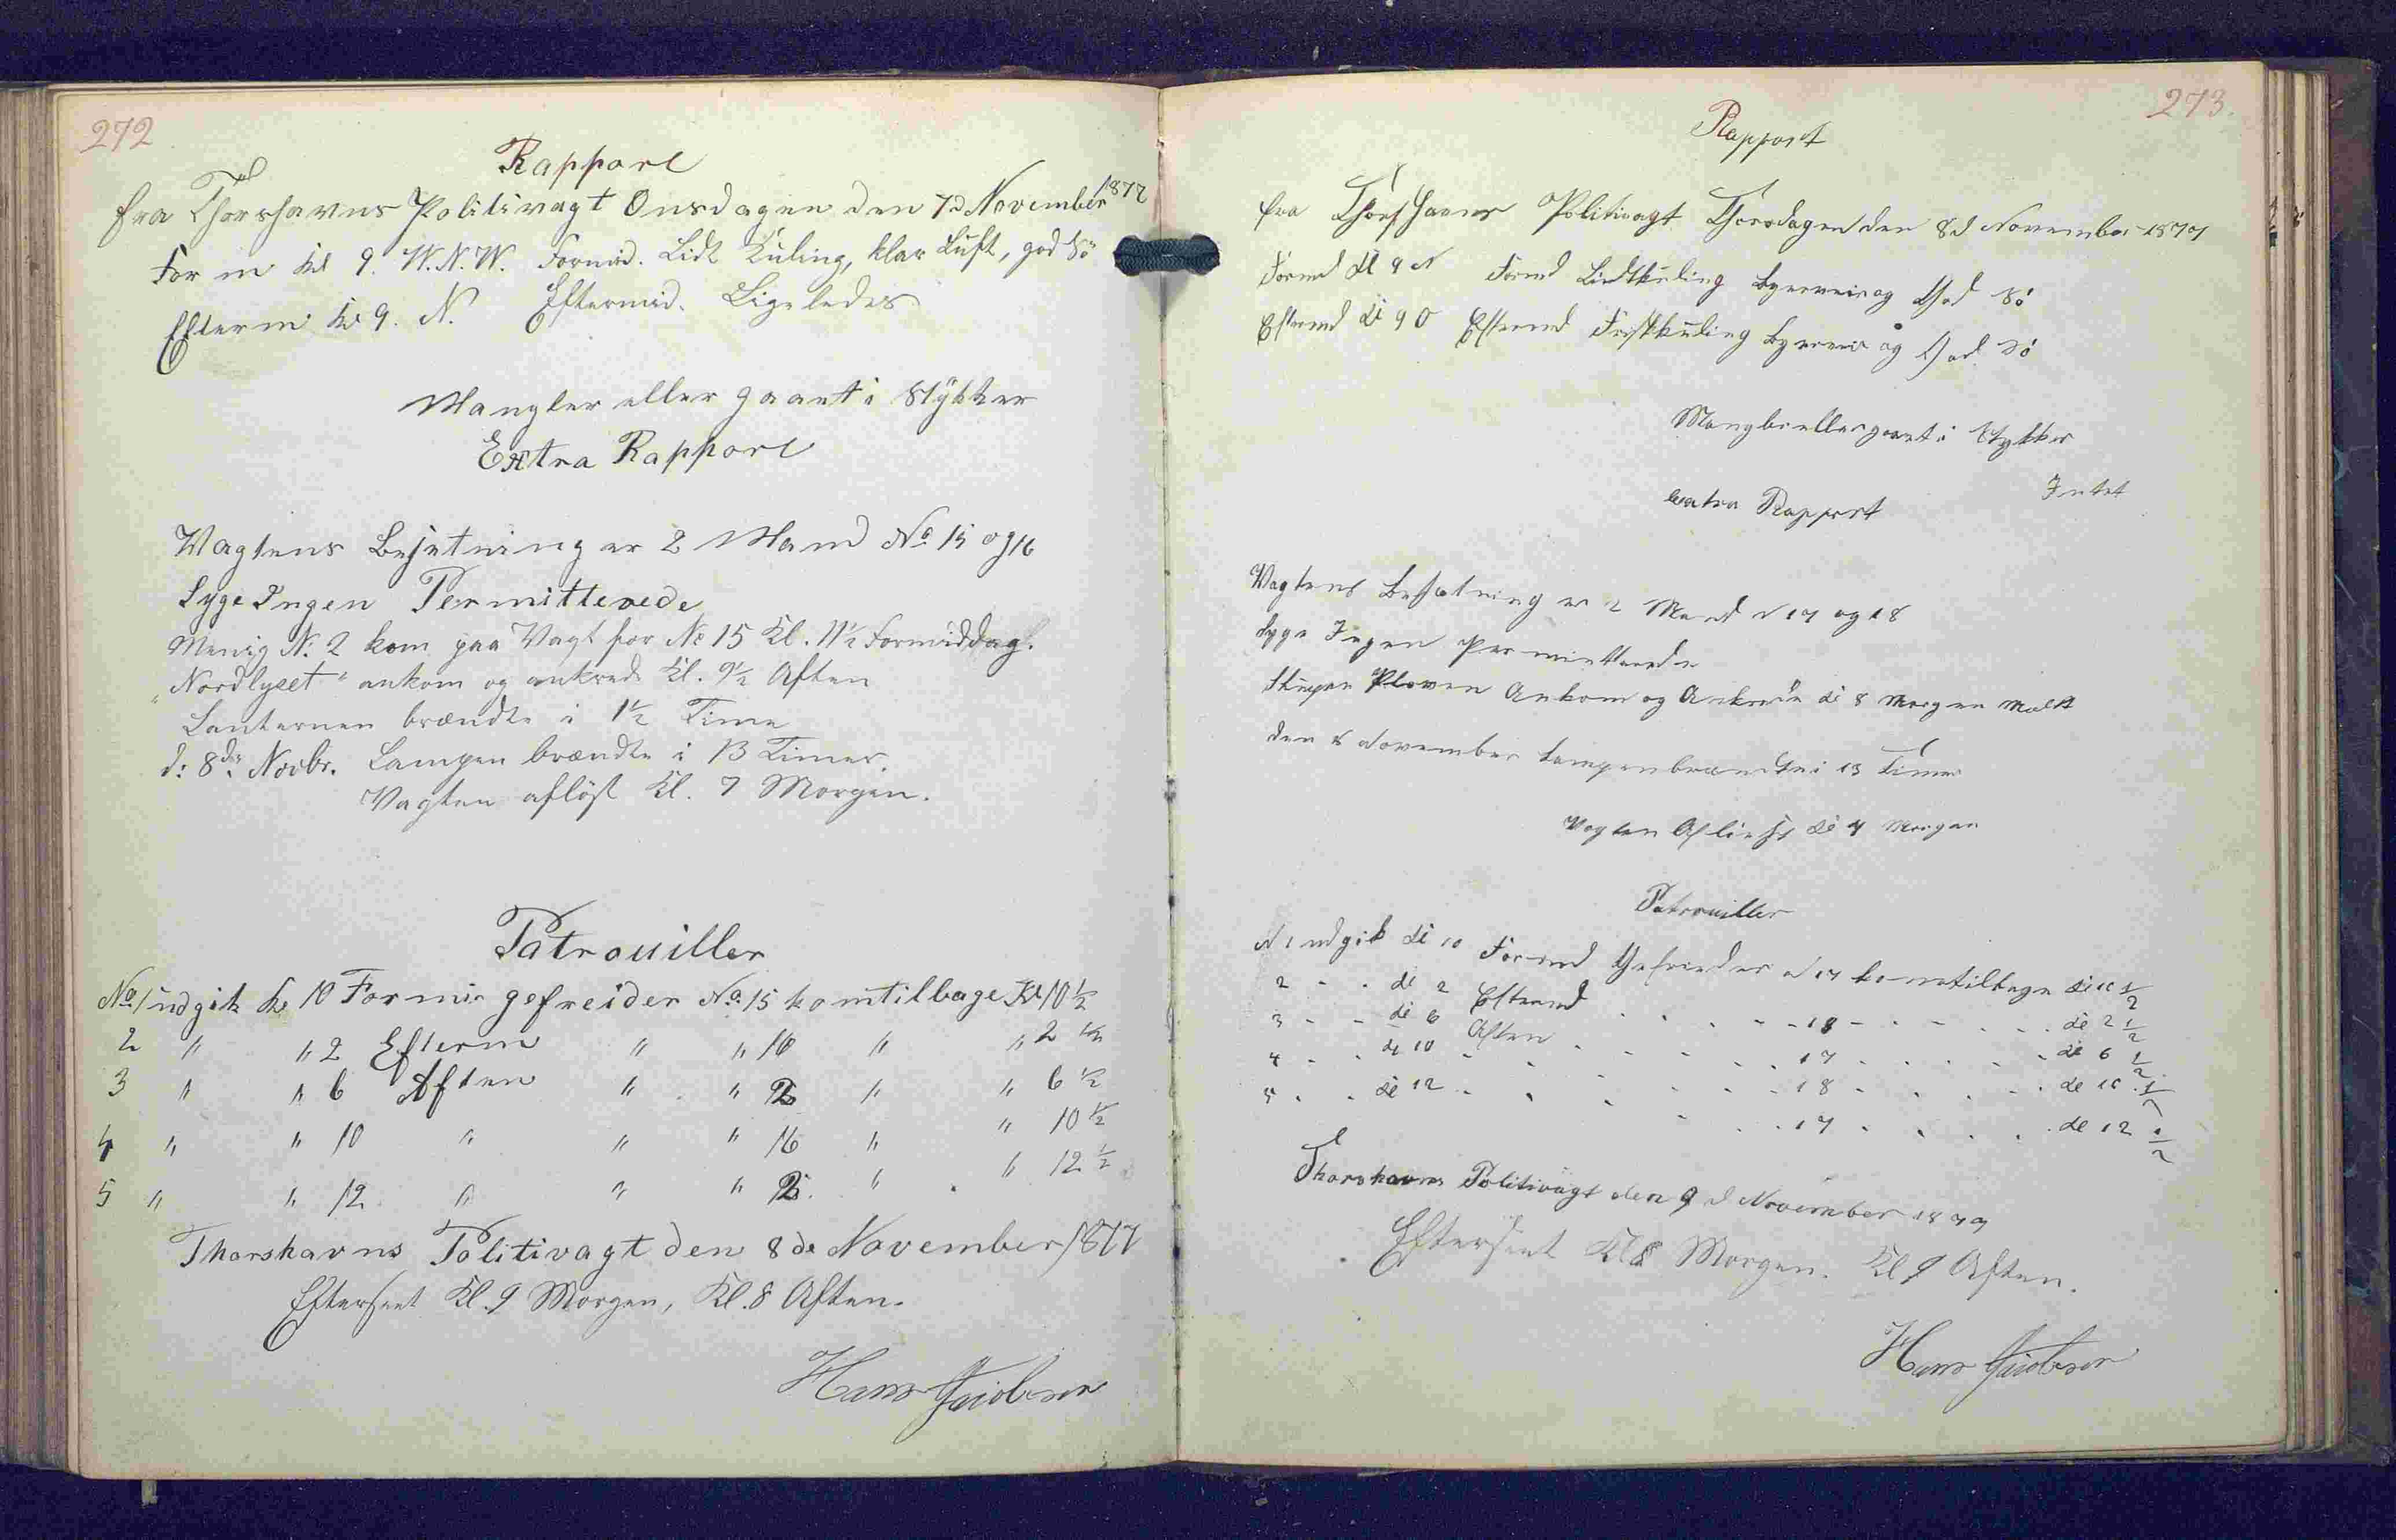 272
Rapport
fra Thorshavns Politivagt Onsdagen den 7d November 1877
For m Kl 9. W.N.W. Formid. Lidt Kuling, klar Luft, god Sö
Efterm Kl 9. N. Eftermid. Ligeledes
Mangler eller gaaet i Stÿkker
Extra Rapport
Vagtens Besætning er 2 Mand No 15 og 16
Syge Ingen Permitterede
Menig N: 2 kom paa Vagt for No 15 Kl. 11½ Formiddag.
"Nordlyset" ankom og ankrede Kl. 9½ Aften
Lanternen brændte i 1½ Time
d: 8de Novbr. Lampen brændte i 13 Timer.
Vagten aflöst Kl. 7 Morgen.
Patrouiller
No 1 udgik Kl 10 Formid gefreider No 15 kom tilbage Kl 10½
2 " " 2 Efterm " " 16 " " 2½
3 " " 6 Aften " " 2 " " 6½
4 " " 10 " " " 16 " " 10½
5 " " 12 " " " 2 " " 12½
Thorshavns Politivagt den 8de November 1877
Efterseet Kl. 9 Morgen, Kl. 8 Aften.
Hans Jacobsen
273.
Rapport
fra Thorshavns Politivagt Thorsdagen den 8d November 1877
Formd Kl 9 N Formd Lidtkuling Byerveir og God Sö
Eftermd Kl 9 O Eftermd Friskkuling Byerveir og God Sö
Mangler eller gaaet i Stykker
Intet
extra Rapport
Vagtens Besætning er 2 Mand N 17 og 18
Syge Ingen Permitterede
Skipen Ploven Ankom og Ankrede Kl 8 Morgen
den November Lampen brændte i 13 Timer
Vagten Aflöst Kl 7 Morgen
Patrouiller
N 1 udgik Kl 10 Formd Gefreider N 17 kom tilbage Kl 10 ½
2 - - Kl 2 Eftermd - - - 18 - - - Kl 2 ½
3 - - Kl 6 Aften - - - 17 - - - Kl 6 ½
4 - - Kl 10 - - - - 18 - - - Kl 10 ½
5 - - Kl 12 - - - - 17 - - - Kl 12 ½
Thorshavns Politivagt den 9 d November 1877
Efterseet Kl 8 Morgen. Kl 9 Aften.
Hans Jacobsen